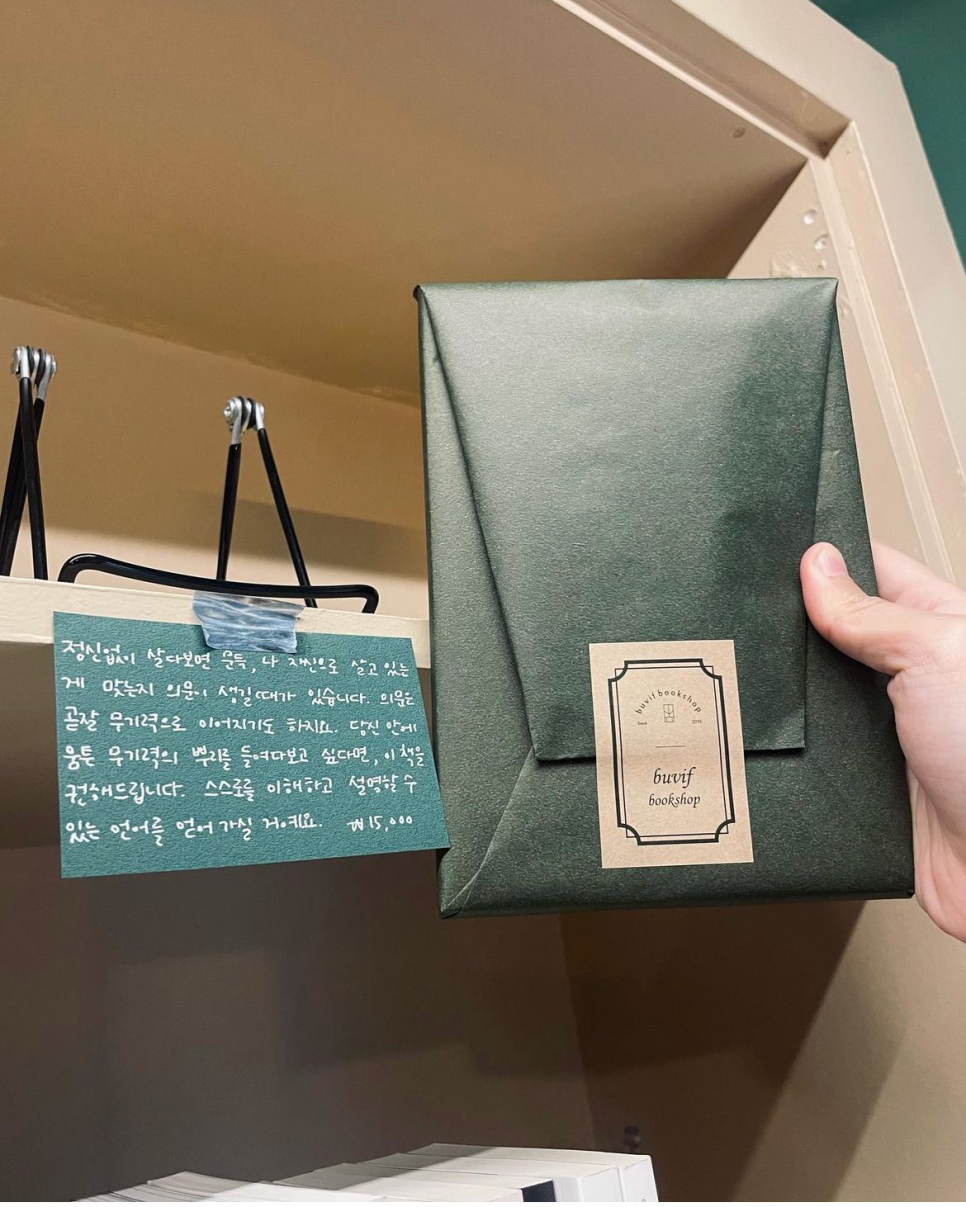 정신없이 살다보면 문득, 나 자신으로 살고 있는
게 맞는지 의문이 생길때가 있습니다. 의문은
곧잘 무기력으로 이어지기도 하지요. 당신 안에
움튼 무기력의 뿌리를 들여다보고 싶다면, 이 책을
권해드립니다. 스스로를 이해하고 설명할 수
있는 언어를 얻어 가실 거예요. ₩15,000
buvif bookshop
buvif
bookshop